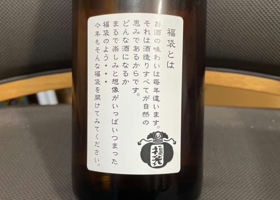 福袋とは
お酒の味わいは毎年違います。
それは酒造りすべてが自然の
恵みであるからです。
どんな酒になるか
まるで楽しみと想像がいっぱいつまった
福袋のよう・・・
今年もそんな福袋を開けてみてください。